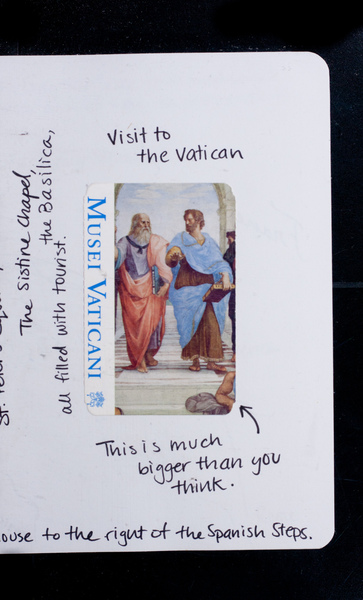 Visit to
the Vatican
The Sistine Chapel,
the Basilica,
all filled with tourist.
MUSEI VATICANI
This is much
bigger than you
think.
to the right of the Spanish Steps.